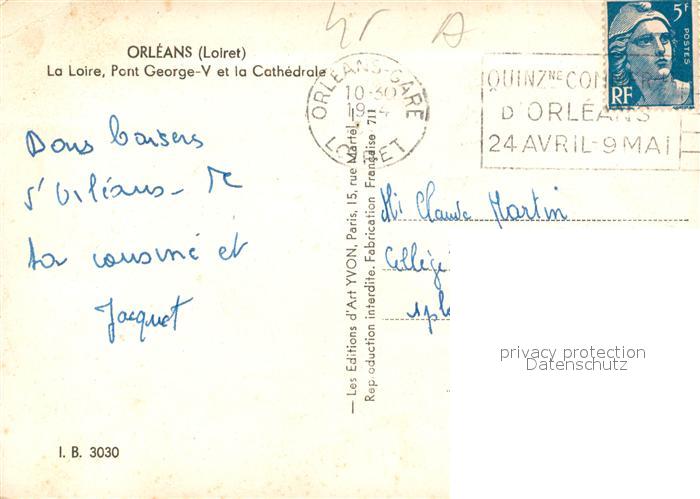 ORLÉANS (Loiret)
La Loire, Pont George-V et la Cathédrale
Bons baisers
d'Orléans - De
ta cousine et
Jacquot
I. B. 3030
— Les Editions d'Art YVON, Paris, 15, rue Martel —
Reproduction interdite. Fabrication Française 711
ORLEANS-GARE
10-30
19-4
LOIRET
QUINZNE COMMER
D'ORLÉANS
24 AVRIL-9 MAI
5F
POSTES
RF
Claude Martin
Collège
privacy protection
Datenschutz